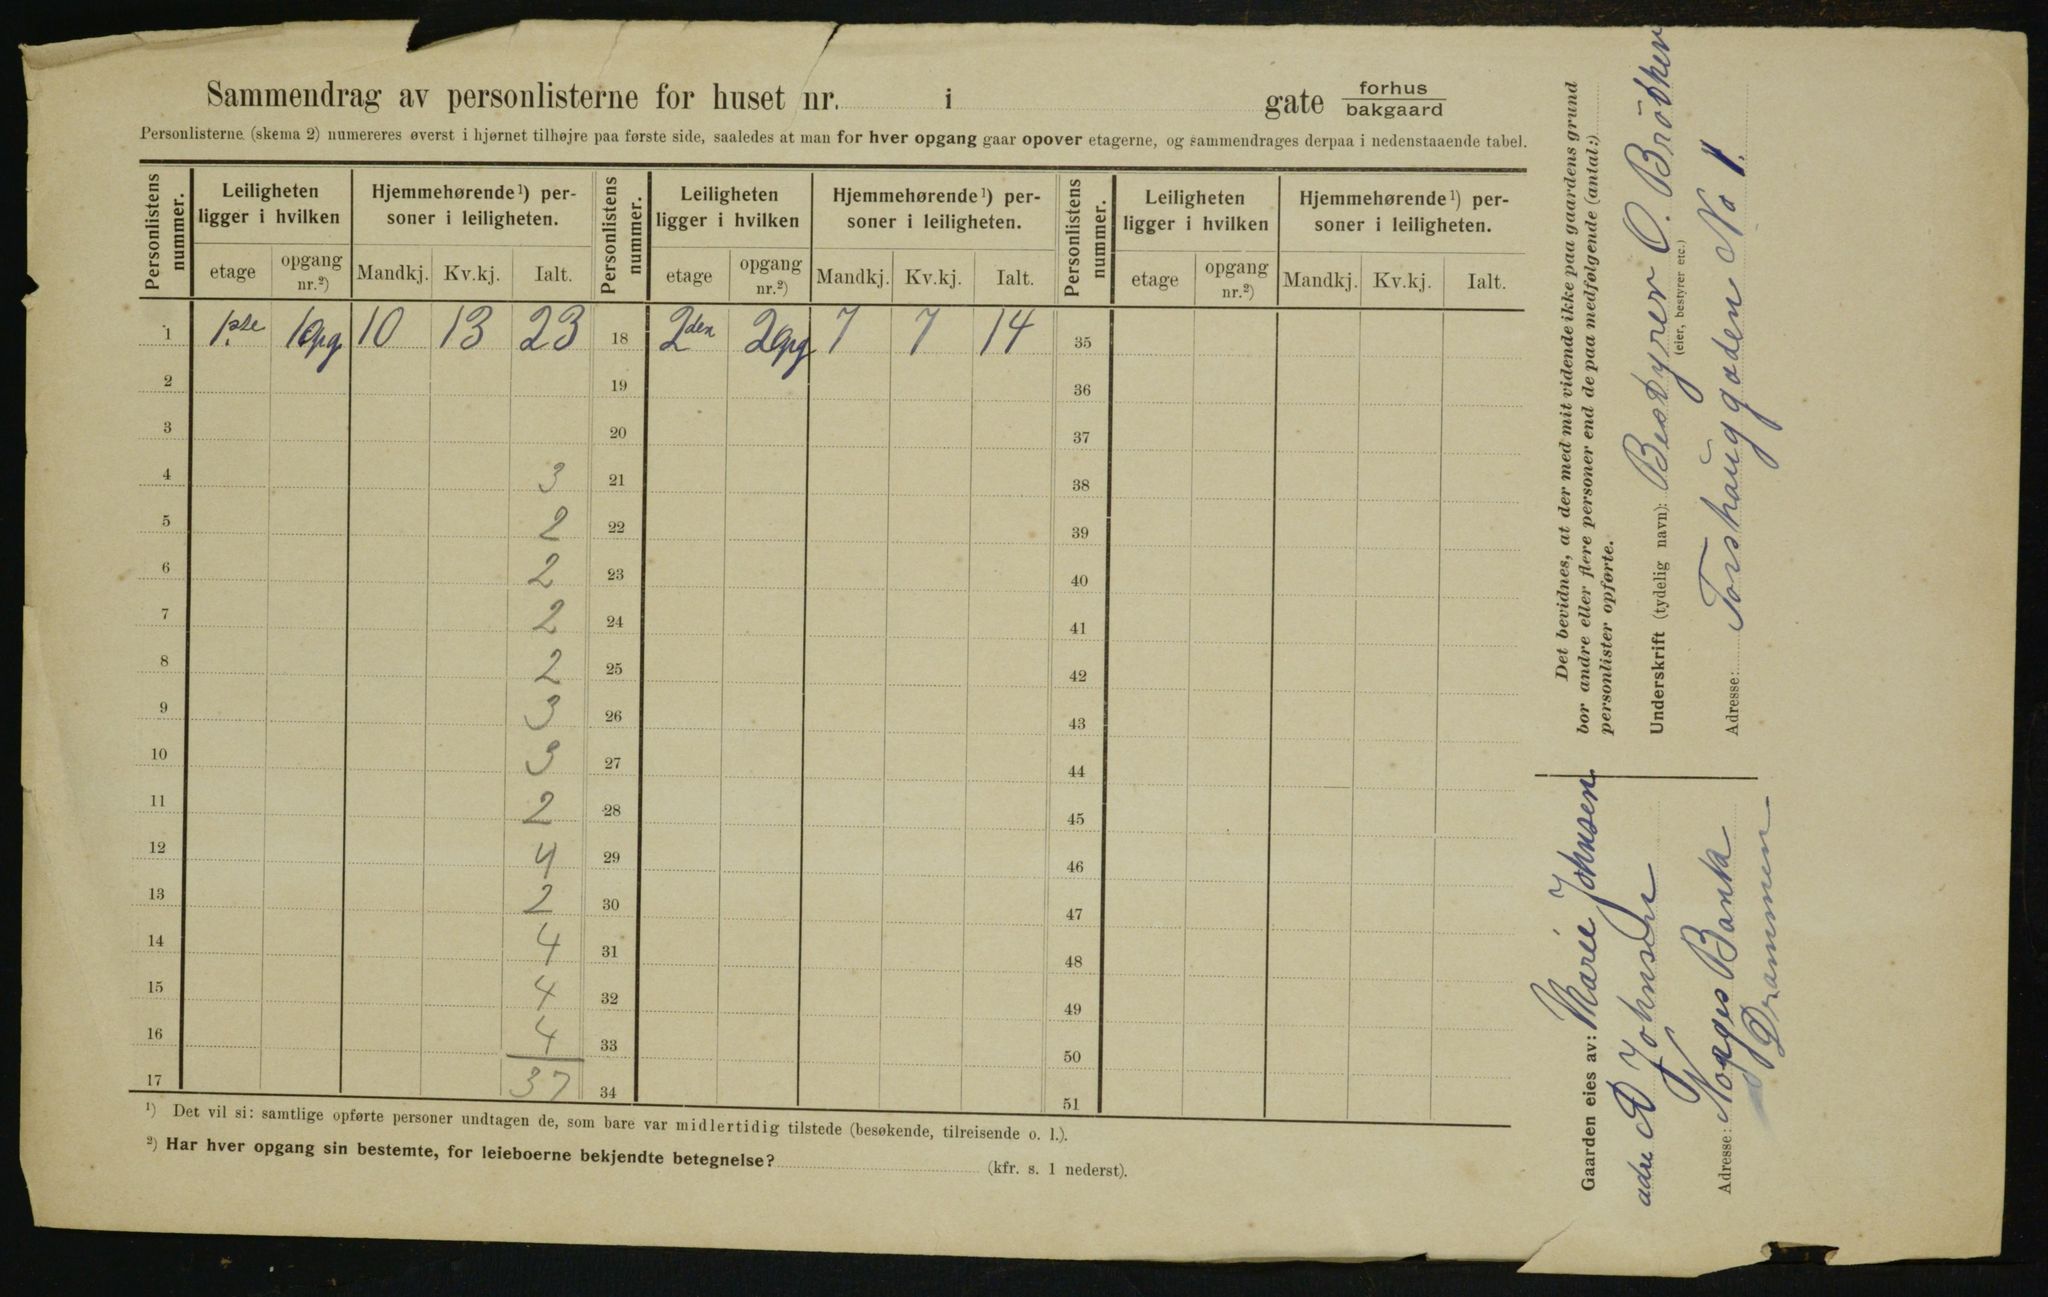 Sammendrag av personlisterne for huset nr. i gate forhus
bakgaard
Personlisterne (skema 2) numereres øverst i hjørnet tilhøjre paa første side, saaledes at man for hver opgang gaar opover etagerne, og sammendrages derpaa i nedenstaaende tabel.
Personlistens nummer. Leiligheten ligger i hvilken Hjemmehørende¹) personer i leiligheten. Personlistens nummer. Leiligheten ligger i hvilken Hjemmehørende¹) personer i leiligheten. Personlistens nummer. Leiligheten ligger i hvilken Hjemmehørende¹) personer i leiligheten.
etage opgang nr.²) Mandkj. Kv.kj. Ialt. etage opgang nr.²) Mandkj. Kv.kj. Ialt. etage opgang nr.²) Mandkj. Kv.kj. Ialt.
1 1.ste 1opg 10 13 23 18 2den 2opg 7 7 14 35
2 19 36
3 20 37
4 3 21 38
5 2 22 39
6 2 23 40
7 2 24 41
8 2 25 42
9 3 26 43
10 3 27 44
11 2 28 45
12 4 29 46
13 2 30 47
14 4 31 48
15 4 32 49
16 4 33 50
17 37 34 51
¹) Det vil si: samtlige opførte personer undtagen de, som bare var midlertidig tilstede (besøkende, tilreisende o. l.).
²) Har hver opgang sin bestemte, for leieboerne bekjendte betegnelse? (kfr. s. 1 nederst).
Det bevidnes, at der med mit vidende ikke paa gaardens grund
bor andre eller flere personer end de paa medfølgende (antal:)
personlister opførte.
Underskrift (tydelig navn): Bestyrer O. Brödher
(eier, bestyrer etc.)
Adresse: Torshauggaden No 1.
Gaarden eies av: Marie Johnsen
adr D Johnsen
Adresse: Norges Bank
Drammen